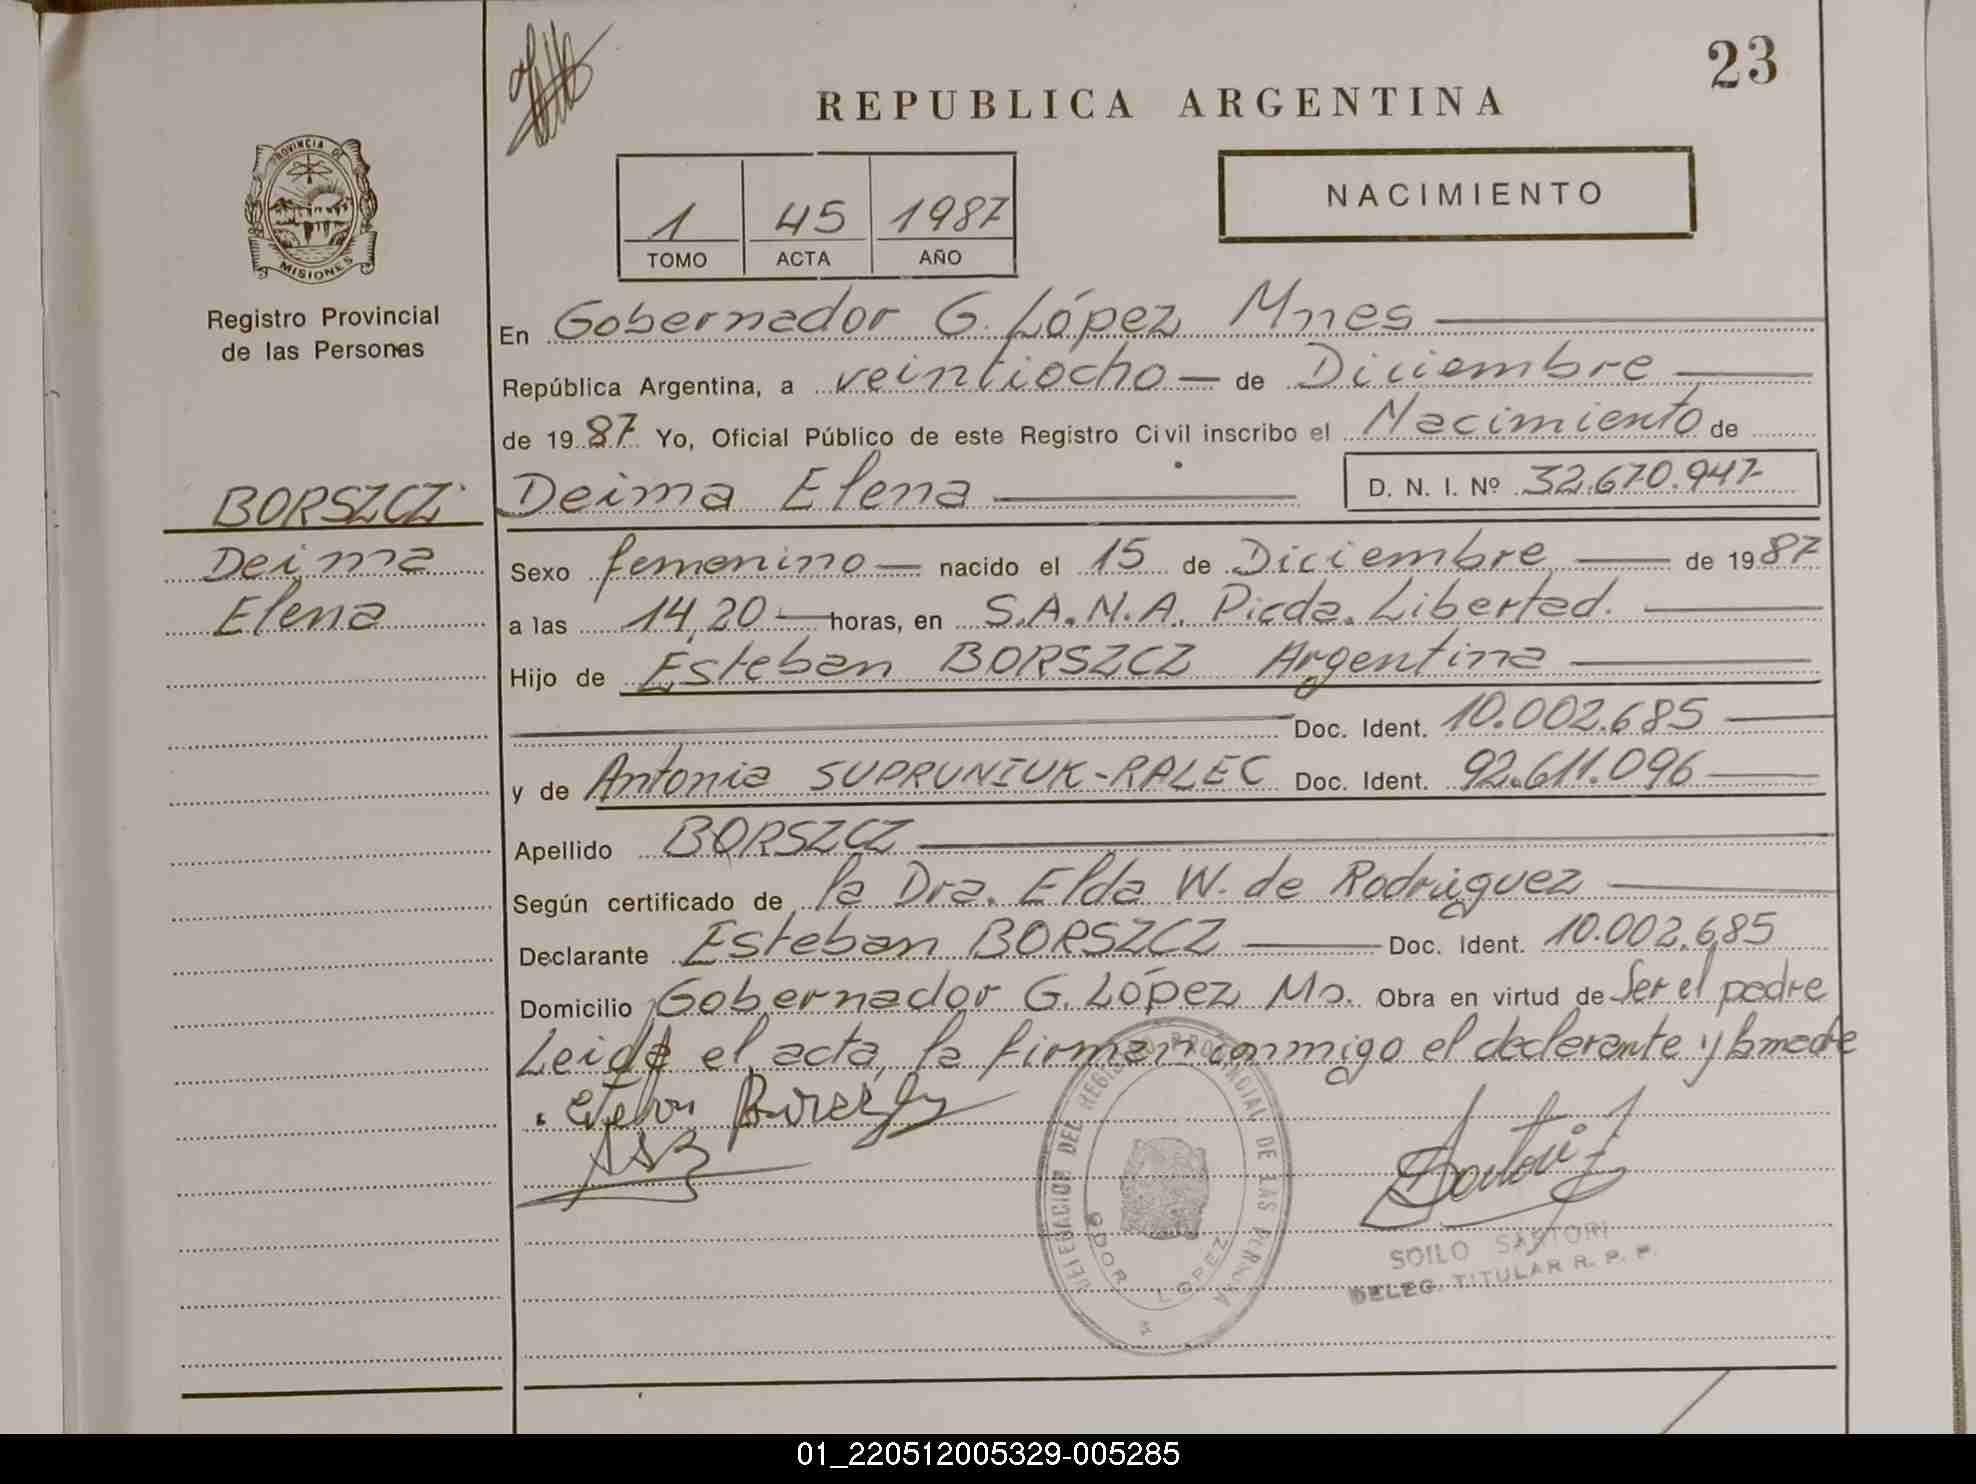 23
REPUBLICA ARGENTINA
PROVINCIA DE
MISIONES
Registro Provincial
de las Personas
1 45 1987
TOMO ACTA AÑO
NACIMIENTO
En Gobernador G. López Mnes
República Argentina, a veintiocho de Diciembre
de 1987 Yo, Oficial Público de este Registro Civil inscribo el Nacimiento de
Deima Elena D. N. I. Nº 32.670.947
BORSZCZ
Deima
Elena
Sexo femenino nacido el 15 de Diciembre de 1987
a las 14,20 horas, en S.A.N.A. Picda. Libertad.
Hijo de Esteban BORSZCZ Argentina
Doc. Ident. 10.002.685
y de Antonia SUPRUNIUK-RALEC Doc. Ident. 92.611.096
Apellido BORSZCZ
Según certificado de la Dra. Elda W. de Rodríguez
Declarante Esteban BORSZCZ Doc. Ident. 10.002.685
Domicilio Gobernador G. López Ms. Obra en virtud de Ser el padre
Leida el acta, la firman conmigo el declarante y la madre
DELEGACION DEL REGISTRO PROVINCIAL DE LAS PERSONAS
GDOR LOPEZ
SOILO SARTORI
DELEG. TITULAR R. P. P.
01_220512005329-005285